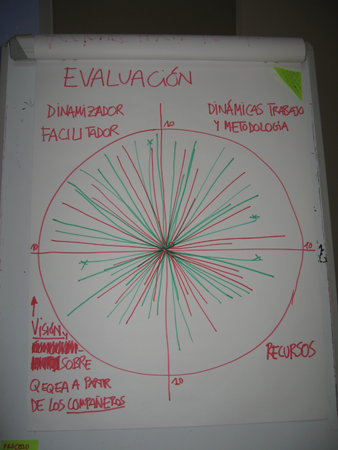 EVALUACIÓN
DINAMIZADOR
FACILITADOR
DINÁMICAS TRABAJO
Y METODOLOGÍA
10
10
10
10
VISIÓN
SOBRE
QEQEA A PARTIR
DE LOS COMPAÑEROS
RECURSOS